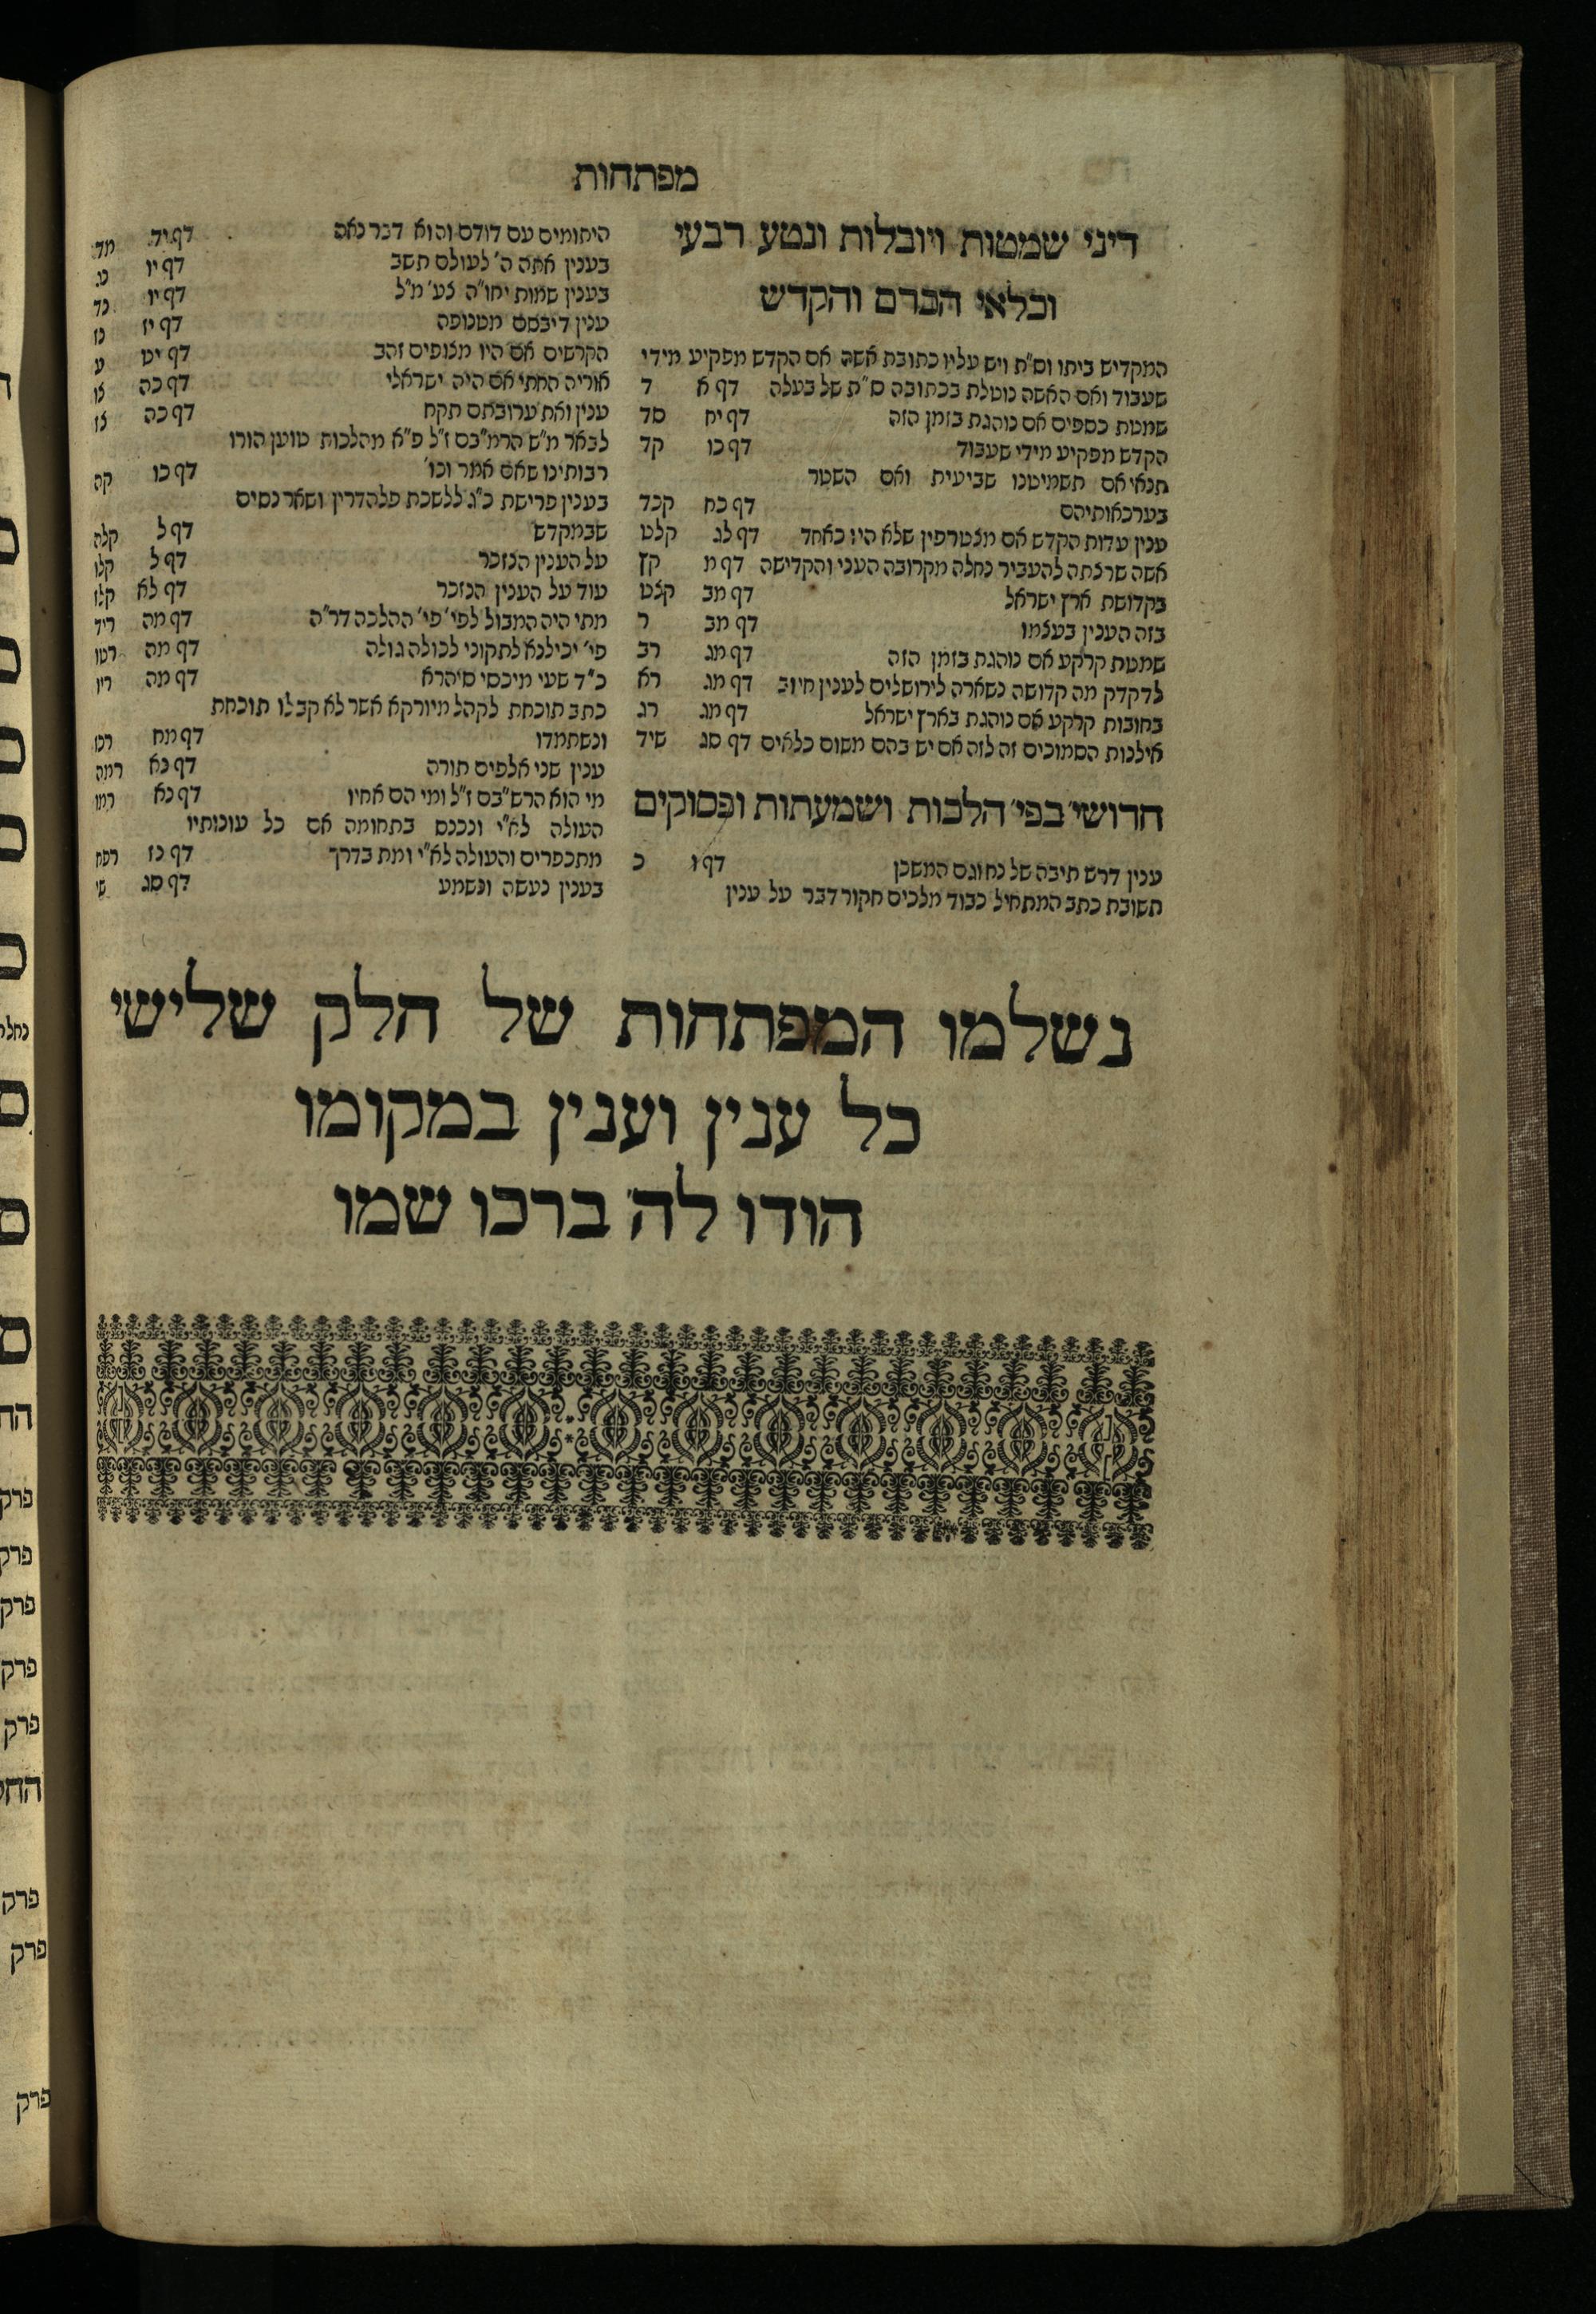 מפתחות
דיני שמטות ויובלות ונטע רבעי
וכלאי הכרם והקדש
המקדיש ביתו וס"ת ויש עליו כתובת אשה אם הקדש מפקיע מידי
שעבוד ואם האשה נוטלת בכתובה ס"ת של בעלה דף א ד
שמטת כספים אם נוהגת בזמן הזה דף יח סד
הקדש מפקיע מידי שעבוד דף כו קד
תנאי אם תשמיטנו שביעית ואם השטר
בערכאותיהם דף כח קכד
ענין עדות הקדש אם מצטרפין שלא היו כאחד דף לג קלט
אשה שרצתה להעביר נחלה מקרובה העני והקדישה דף מ קץ
בקדושת ארץ ישראל דף מב קצט
בזה הענין בעצמו דף מב ר
שמטת קרקע אם נוהגת בזמן הזה דף מג רב
לדקדק מה קדושה נשארה לירושלים לענין חיוב דף מג רא
בחובות קרקע אם נוהגת בארץ ישראל דף מג רג
אילנות הסמוכים זה לזה אם יש בהם משום כלאים דף סג שיד
חדושי בפי' הלכות ושמעתות ופסוקים
ענין דרש תיבה של נח וגם המשכן דף ו כ
תשובת כתב המתחיל כבוד מלכים חקור דבר על ענין
היתומים עם דודם והוא דבר נאה דף יד מד
בענין אתה ה' לעולם תשב דף יו
בענין שמות יהו"ה דף יו
ענין דיבמם מטנופה דף יז
הקרשים אם היו מצופים זהב דף יט ע
אוריה החתי אם היה ישראלי דף כה צו
ענין ואת ערובתם תקח דף כה צז
לבאר מ"ש הרמ"בם ז"ל פ"א מהלכות טוען הורו
רבותינו שאם אמר וכו' דף כו קה
בענין פרישת כ"ג ללשכת פלהדרין ושאר נסים
שבמקדש דף ל קלה
על הענין הנזכר דף ל קלו
עוד על הענין הנזכר דף לא קלז
מתי היה המבול לפי' פי' ההלכה דר"ה דף מה ריד
פי' יכילנא לתקוני לכולה גולה דף מה רטו
כ"ד שעי מיכסי סיהרא דף מה ריו
כתב תוכחת לקהל מיורקא אשר לא קבלו תוכחת
ונשתמדו דף מח רכז
ענין שני אלפים תורה דף נא רמה
מי הוא הרש"בם ז"ל ומי הם אחיו דף נא רמו
העולה לא"י ונכנס בתחומה אם כל עונותיו
מתכפרים והעולה לא"י ומת בדרך דף נז רפח
בענין נעשה ונשמע דף סג שי
נשלמו המפתחות של חלק שלישי
כל ענין וענין במקומו
הודו לה' ברכו שמו